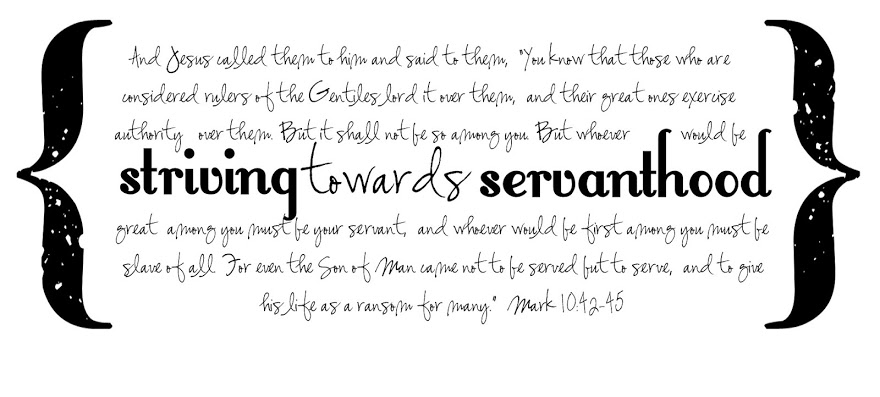 And Jesus called them to him and said to them, "You know that those who are
considered rulers of the Gentiles lord it over them, and their great ones exercise
authority over them. But it shall not be so among you. But whoever would be
striving towards servanthood
great among you must be your servant, and whoever would be first among you must be
slave of all. For even the Son of Man came not to be served but to serve, and to give
his life as a ransom for many." Mark 10:42-45